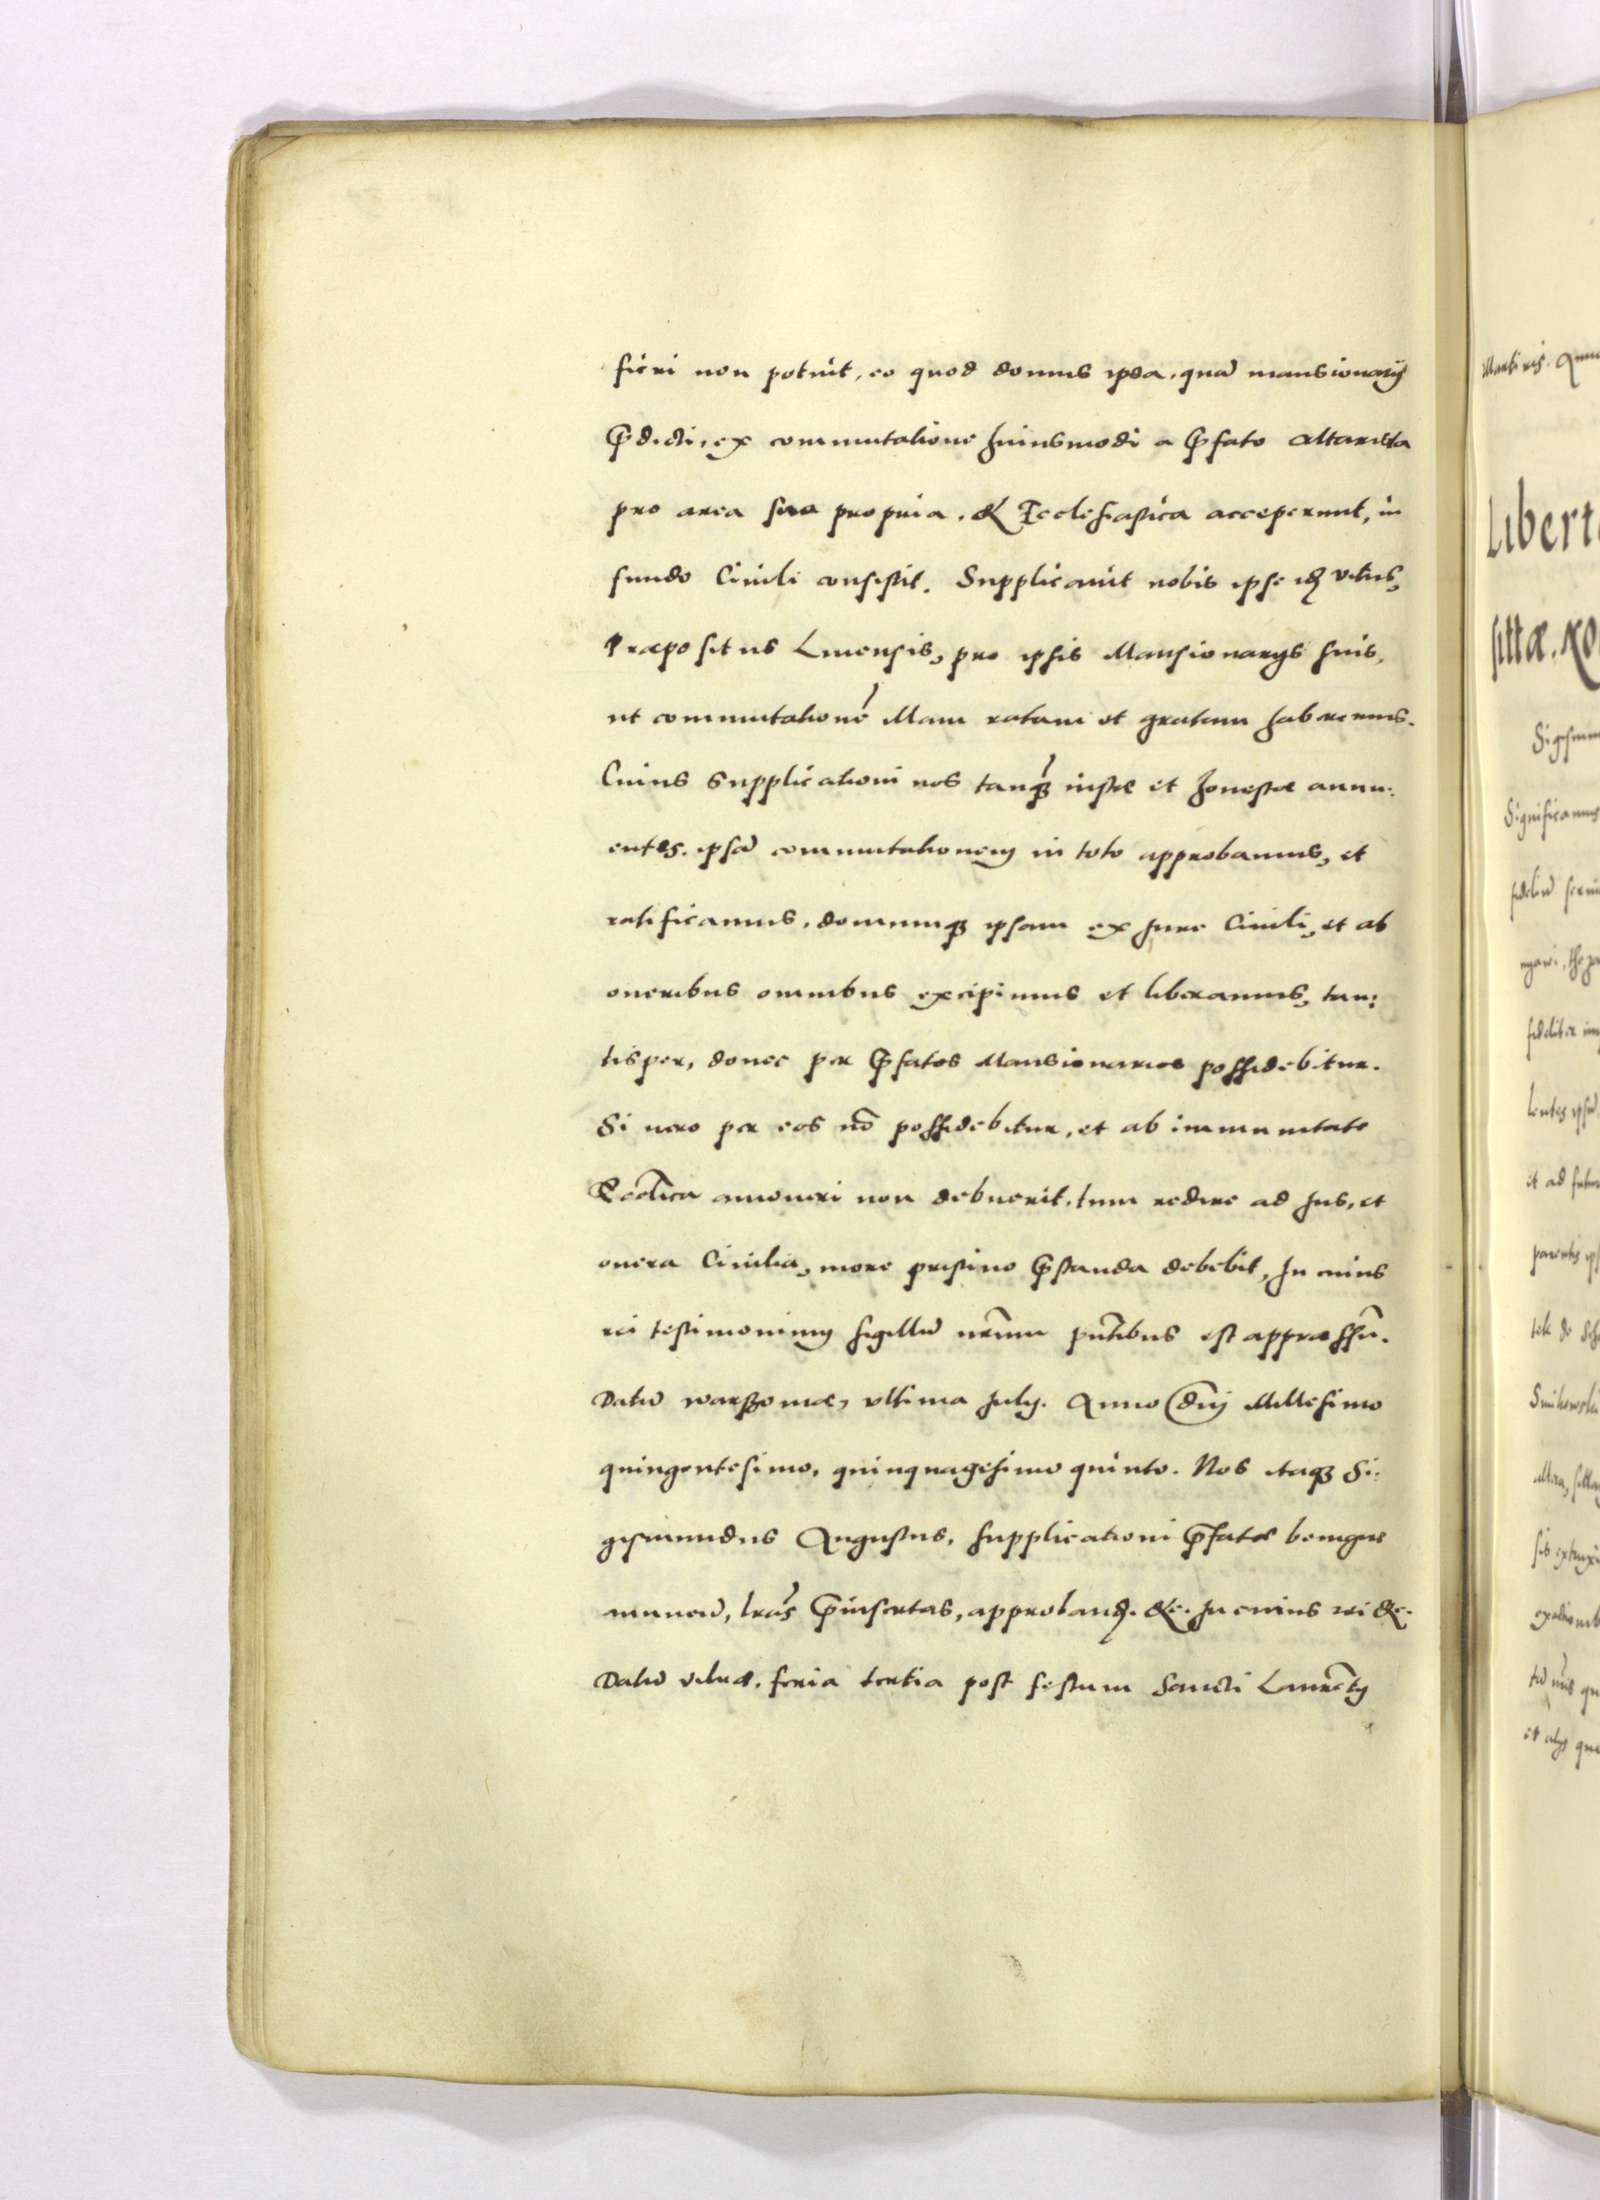 fieri non potuit, eo quod domus ipsa, quā mansionarij
p̄dicti, ex commutatione huiusmodi a p̄fato altarista
pro area sua propria, & Ecclesiastica acceperunt, in
fundo Ciuili consistit. Supplicauit nobis ipse idē vitus,
Præpositus Liuensis, pro ipsis Mansionarijs suis,
ut commutationē illam ratam et gratam haberemus.
Cuius supplicationi nos tanq̄ iustæ et honestæ annu:
entes, ipsā commutationem in toto approbamus, et
ratificamus, domumq; ipsam ex Jure Ciuili, et ab
oneribus omnibus excipimus et liberamus, tan:
tisper, donec per p̄fatos Mansionarios possidebitur.
Si uero per eos nō possidebitur, et ab immunitate
Eccl̄ica amoueri non debuerit, tum redire ad Jus, et
onera Ciuilia, more pristino p̄standa debebit, In cuius
rei testimonium sigillū nr̄um pn̄tibus est appressū.
Datū warschouiæ, vltima Julij. Anno Dn̄i Millesimo
quingentesimo, quinquagesimo quinto. Nos itaq; Si:
gismundus Augustus, supplicationi p̄fatæ benigne
annuen̄, lr̄as p̄insertas, approband̄. &c. In cuius rei &c.
Datū vilnæ, feria tertia post festum Sancti Laurētij
Martiris.
Libert
sittæ.
Significamus
fidelit̄
it ad
parentis
et alijs